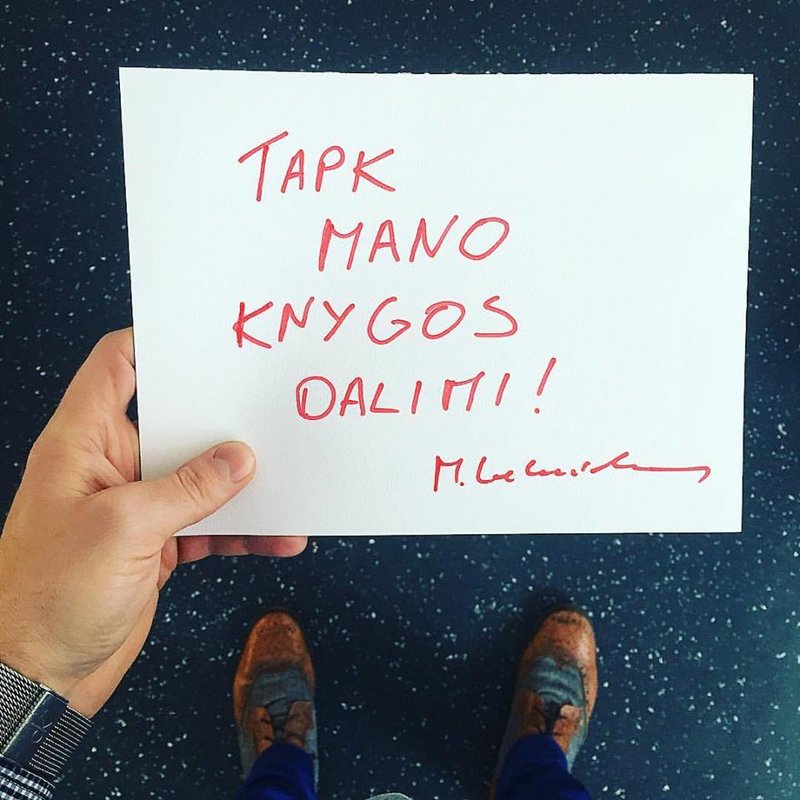 TAPK
MANO
KNYGOS
DALIMI!
M.